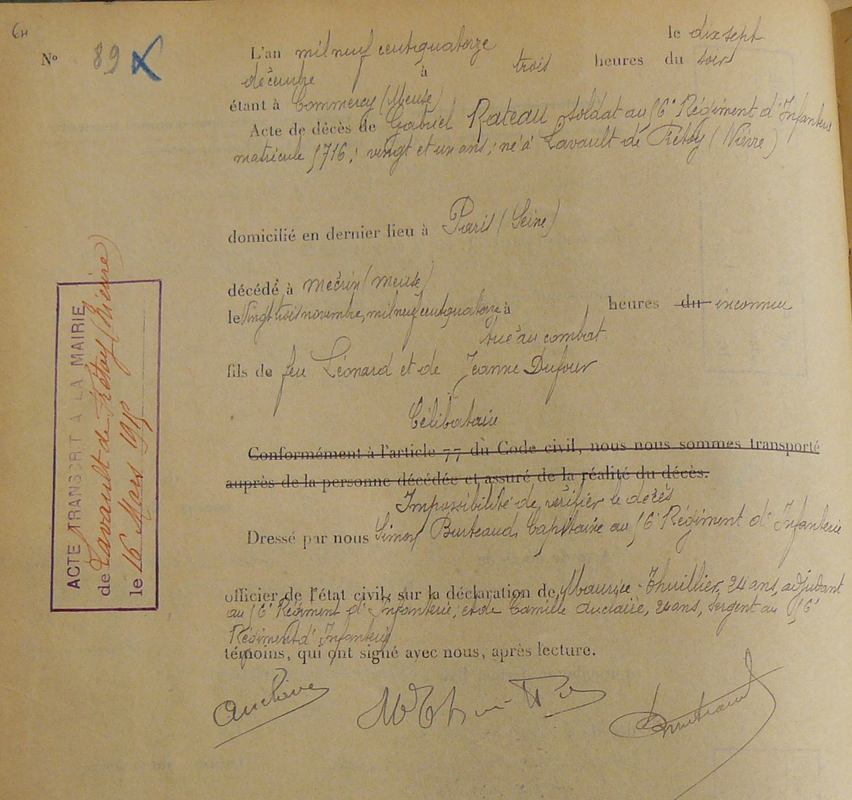 64
N° 89
L'an mil neuf cent quatorze le dix sept
décembre à trois heures du soir
étant à Commercy (Meuse)
Acte de décès de Gabriel Rateau soldat au 16e Régiment d'Infanterie
matricule 1716; vingt et un ans; né à Lavault de Frétoy (Nièvre)
domicilié en dernier lieu à Paris (Seine)
décédé à Mécrin (Meuse)
le vingt trois novembre, mil neuf cent quatorze à heures du inconnu
tué au combat
fils de feu Léonard et de Jeanne Dufour
Célibataire
Conformément à l'article 77 du Code civil, nous nous sommes transporté
auprès de la personne décédée et assuré de la réalité du décès.
Impossibilité de vérifier le décès
Dressé par nous Simon Burteaud, Capitaine au 16e Régiment d'Infanterie
officier de l'état civil, sur la déclaration de Maurice Thuillier, 24 ans, adjudant
au 16e Régiment d'Infanterie; et de Camille Auclaire, 24 ans, sergent au 16e
Régiment d'Infanterie
témoins, qui ont signé avec nous, après lecture.
Auclaire M Thuillier Burteaud
ACTE TRANSCRIT A LA MAIRIE
de Lavault de Frétoy (Nièvre)
le 16 Mars 1915